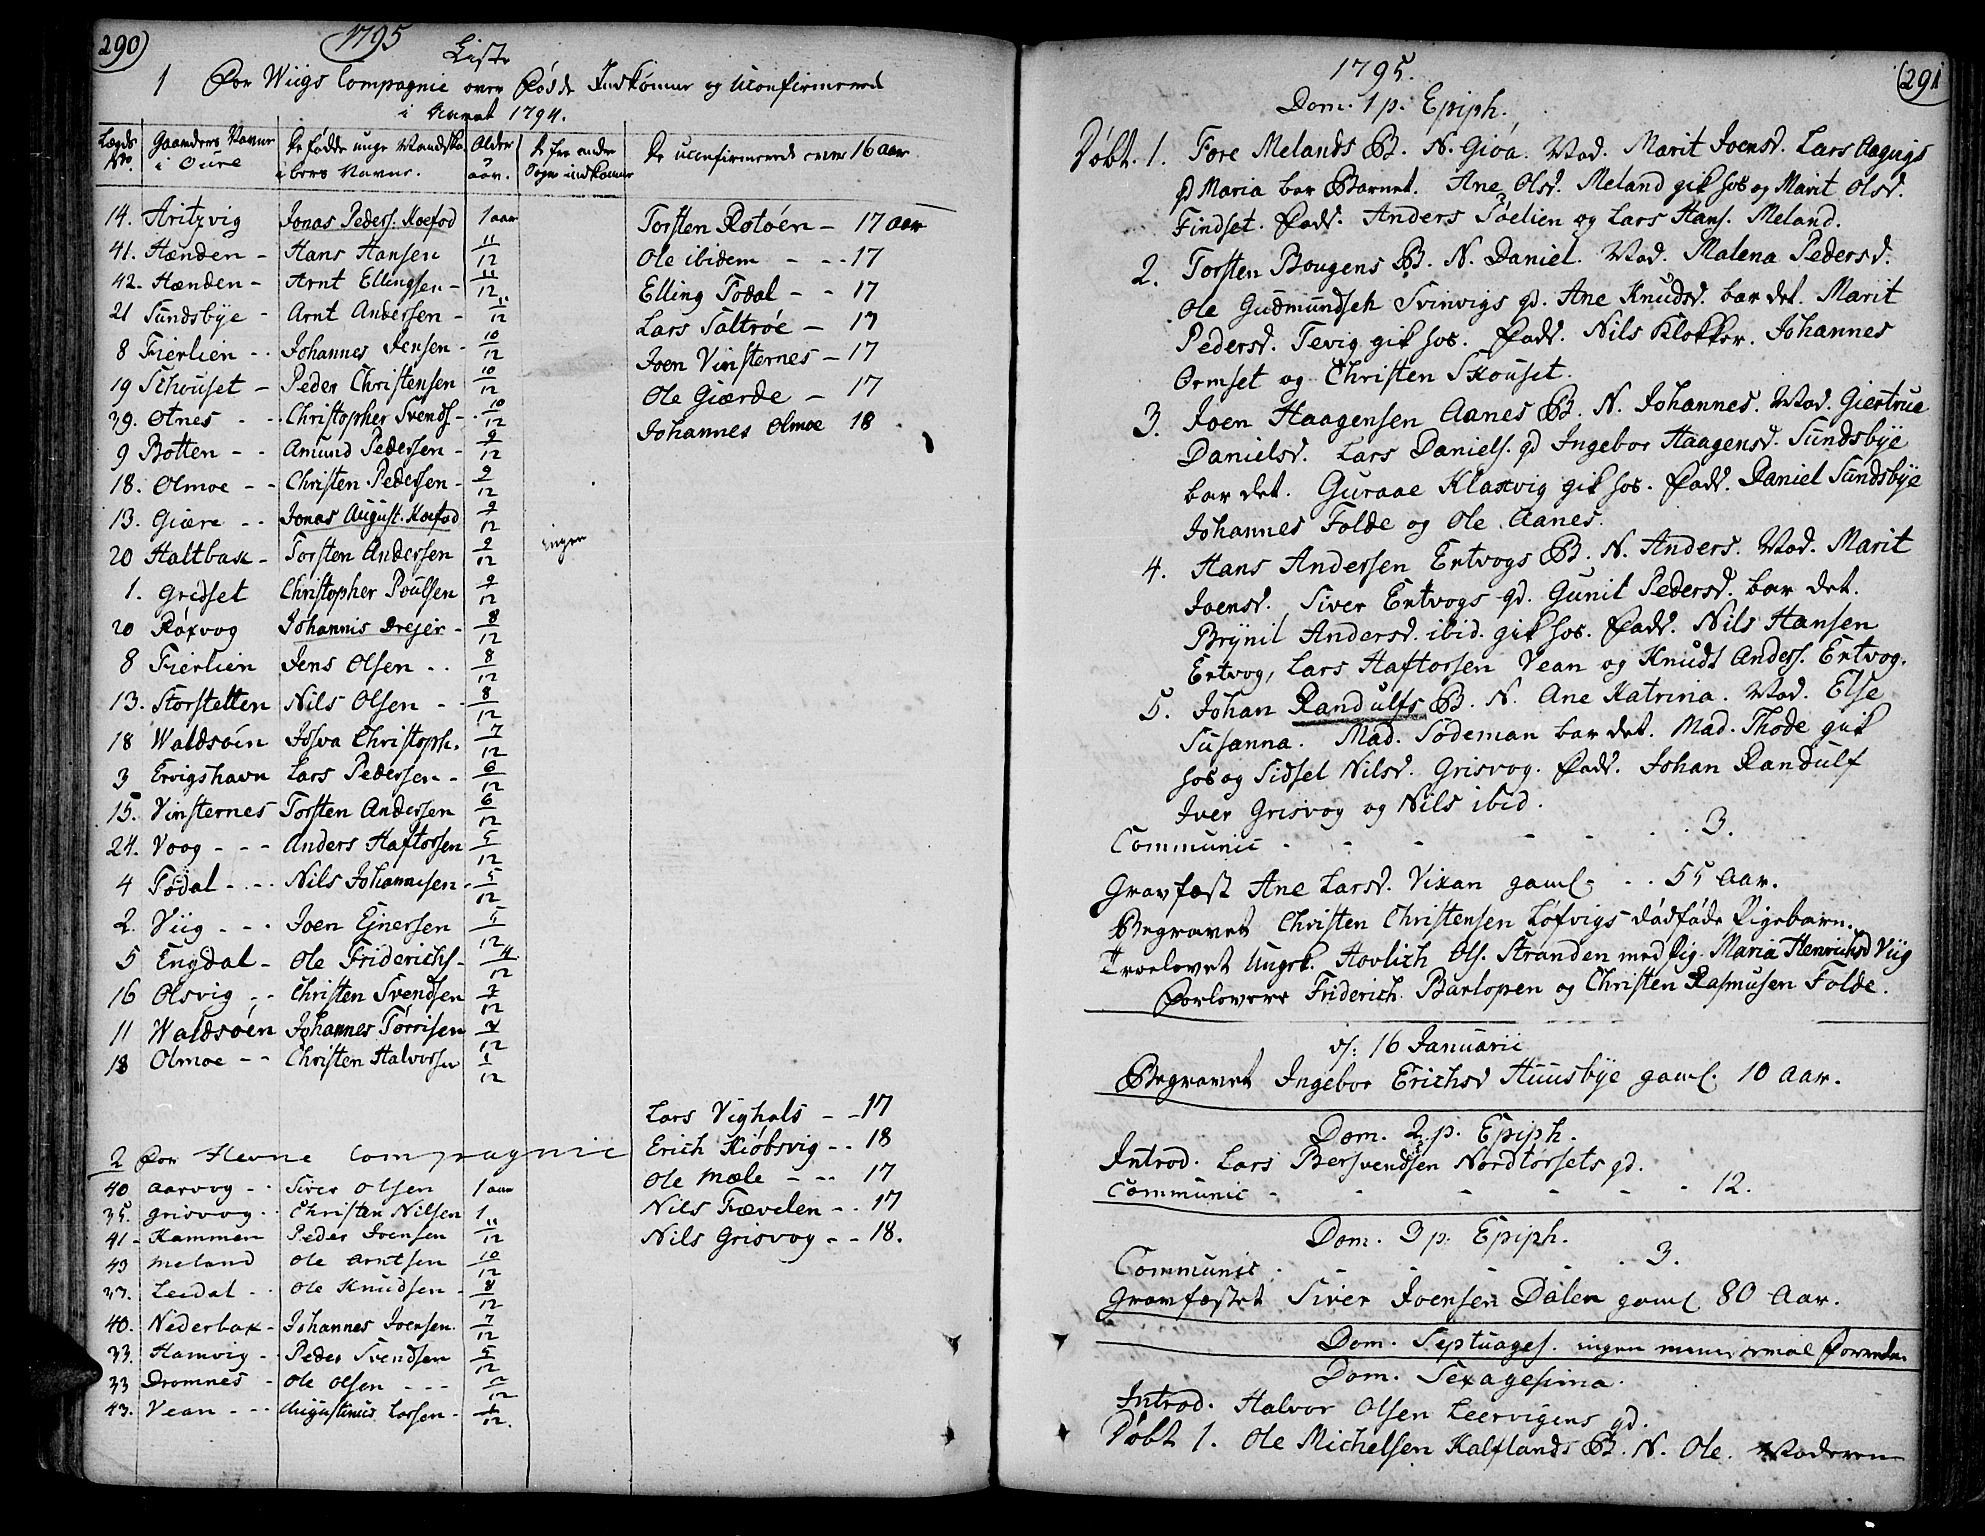 290)
1795
Liste
1 For Wiigs Compagnie over Fødde Indkomne og Uconfirmerede
i Aaret 1794.
Lægds No. | Gaardens Navne i Øure | De fødde unge Mandskabers Navne. | Alder aar. | De fra andre Sogne indkomne | De uconfirmerede over 16 aar
14. Aritzvig Jonas Peders. Koefod 1 aar
41. Hænden - Hans Hansen 11/12
42. Hænden - Arnt Ellingsen - 11/12
21 Sundsbye - Arnt Andersen - 11/12
8 Fierlien - - Johannes Jensen - 10/12
19 Schouset - Peder Christensen 10/12
39. Otnes - - Christopher Svends - 10/12
9 Botten - - Amund Pedersen - 9/12
18. Olmoe - - Christen Pedersen - 9/12
13. Giære - - Jonas August. Koefod 9/12
20 Haltbax - Torsten Andersen 9/12 ingen
1. Gredset Christopher Poulsen 9/12
20 Røxvog Johannis Drejer - 8/12
8 Fierlien Jens Olsen - - 8/12
13. Storstetten Nils Olsen - - 8/12
18 Waldsøen Josva Christoph. 7/12
3 Ervigshavn Lars Pedersen - 6/12
15. Vinsternes Torsten Andersen 6/12
24. Voog - - - Anders Haftorsen 5/12
4 Todal - - - Nils Johannesen - 5/12
2. Viig - - - Joen Ejnersen 5/12
5 Engdal - Ole Friderichs - 4/12
16 Olsvig - - Christen Svendsen 3/12
11 Waldsøen Johannes Torrisen 4/12
18 Olmoe - - Christen Halvorsen 1/12
Torsten Rotøen - 17 aar
Ole ibidem - - - 17
Elling Todal - - 17
Lars Saltrøe - 17
Joen Vinsternes - 17
Ole Giærde - 17
Johannes Olmoe 18
2 For Hevne Compagnie
40 Aarvog - - Siver Olsen 1 aar
35. Grisvog - - Christen Nilsen 1
41 - Hammen Peder Joensen 11/12
43 Meland Ole Arntsen 10/12
33. Leedal - - Ole Knudsen - 8/12
40. Nederbax - Johannes Joensen. 7/12
33. Hamvig - - Peder Svendsen 5/12
33 Dromnes - Ole Olsen - - -
43. Vean - - - Augustinus Larsen - 1/12.
Lars Vighals - - 17
Erich Kiøbsvig - - 18
Ole Mæle - - - 17
Nils Frevelen - - 17
Nils Grisvog - - 18.
291
1795.
Dom. 1 p. Epiph.
Døbt. 1. Tore Melands B. N. Giøa. Mod. Marit Joensd. Lars Aagvigs
qd Maria bar Barnet. Ane Olsd. Meland gik hos og Marit Olsd.
Findset. Fadd. Anders Søelien og Lars Hans. Meland.
2. Torsten Bougens B. N. Daniel. Mod. Malena Pedersd.
Ole Gudmundsen Svinvigs qd. Ane Knudsd. bar det. Marit
Pedersd. Tevig gik hos. Fadd. Nils Klokker. Johannes
Ormset og Christen Skouset.
3. Joen Haagensen Aanes B. N. Johannes. Mod. Giertrue
Danielsd. Lars Daniels. qd Ingebor Haagensd. Sundsbye
bar det. Guraae Klaxvig gik hos. Fadd. Daniel Sundsbye
Johannes Folde og Ole Aanes.
4. Hans Andersen Ertvogs B. N. Anders. Mod. Marit
Joensd. Siver Ertvogs qd. Gunil Pedersd. bar det.
Brynil Andersd. ibid. gik hos. Fadd. Nils Hansen
Ertvog, Lars Haftorsen Vean og Knud Anders. Ertvog.
5. Johan Randulfs B. N. Ane Katrina. Mod. Else
Susanna. Mad. Sodeman bar det. Mad. Thode gik
hos og Sidsel Nilsd. Grisvog. Fadd. Johan Randulf
Iver Grisvog og Nils ibid.
Communic - - - - - - 3.
Gravfæst Ane Larsd. Vixan gaml. - - 55 Aar.
Begravet Christen Christensen Løfvigs dødføde Pigebarn.
Troelovet Ungk. Hovlich Ols. Stranden med Pig. Maria Henrichsd Viig
Forlovere Friderich Barlopen og Christen Rasmusen Folde.
d: 16 Januarii
Begravet Ingebor Erichsd Huusbye gaml. 10 Aar.
Dom. 2. p. Epiph.
Introd. Lars Bersvendsen Nordtorsets qd.
Communic - - - - - - 12.
Dom. 3 p. Epiph.
Communic. - - - - - 3.
Gravfæstet Siver Joensen Dalen gaml 80 Aar.
Dom. Septuages. ingen Forrette.
Dom. Sexagesima.
Introd. Halvor Olsen Leervigens qd.
Døbt 1. Ole Michelsen Kalflands B. N. Ole. Moderen